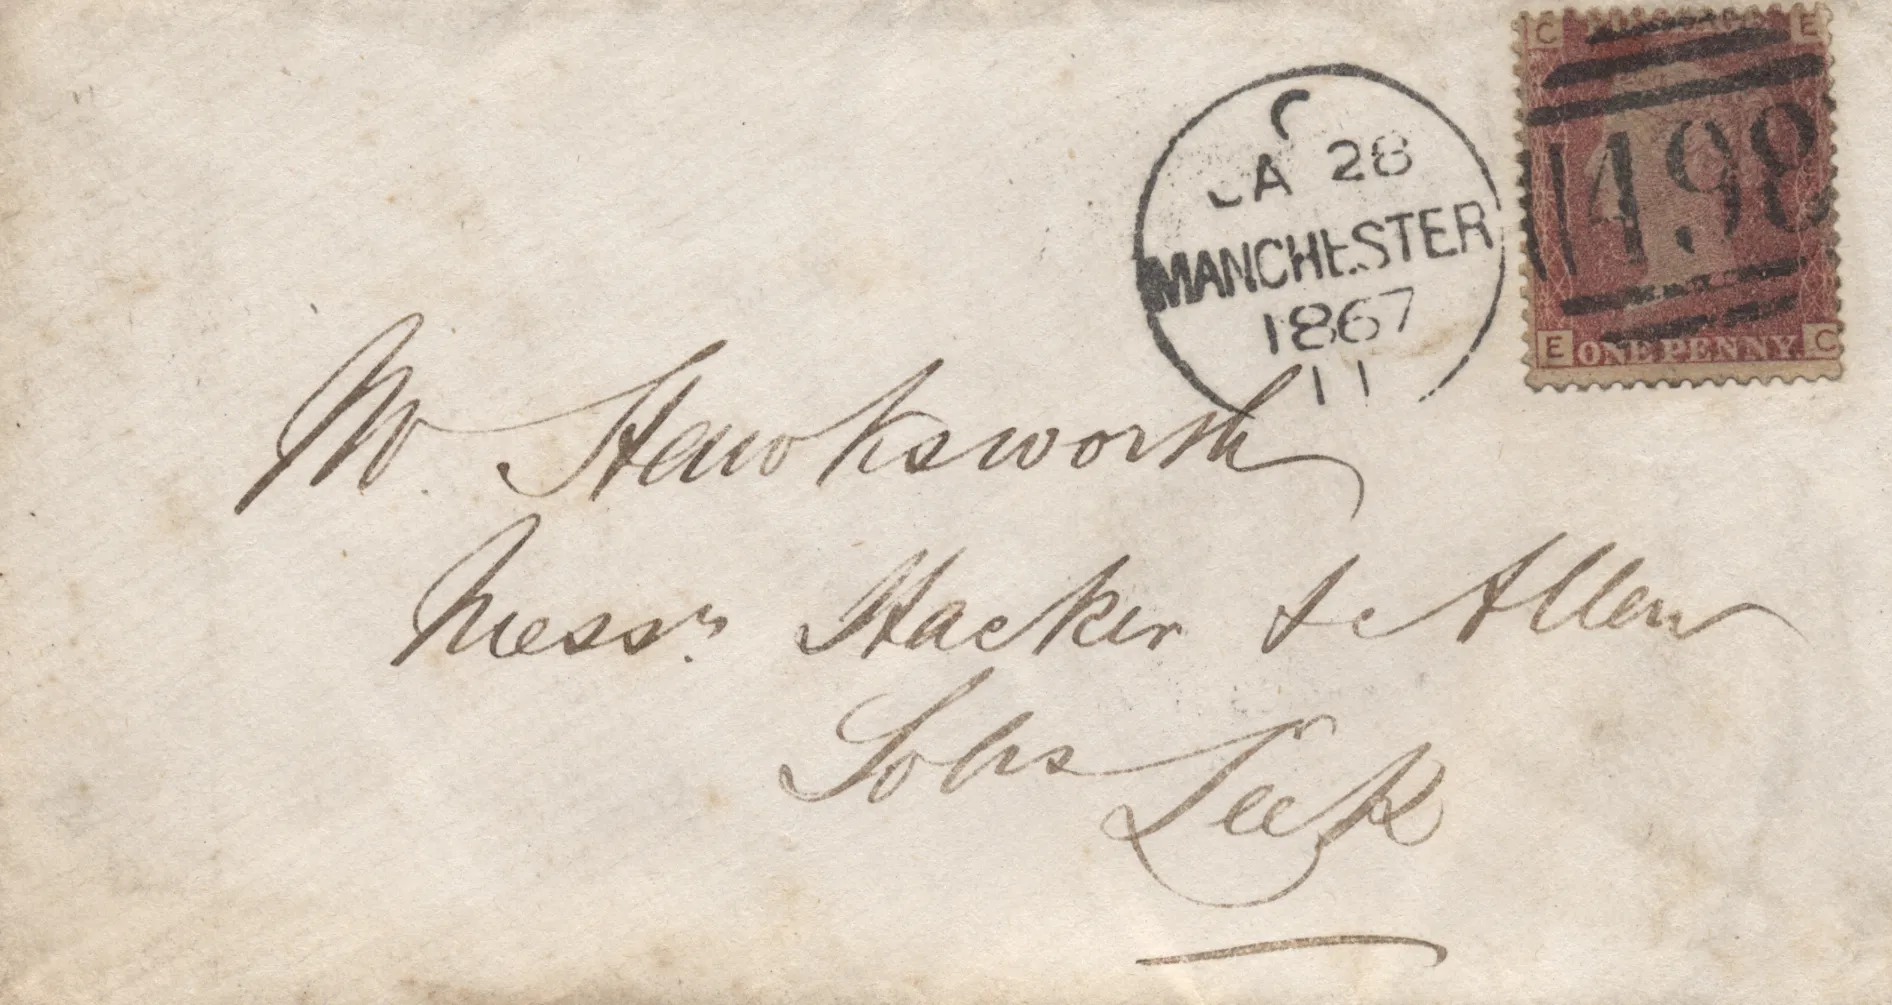 C POSTAGE E
C
JA 28
MANCHESTER
1867
11
498
E ONE PENNY. C
Mr. Hawksworth
Messrs. Hacker & Allen
Solrs Leek